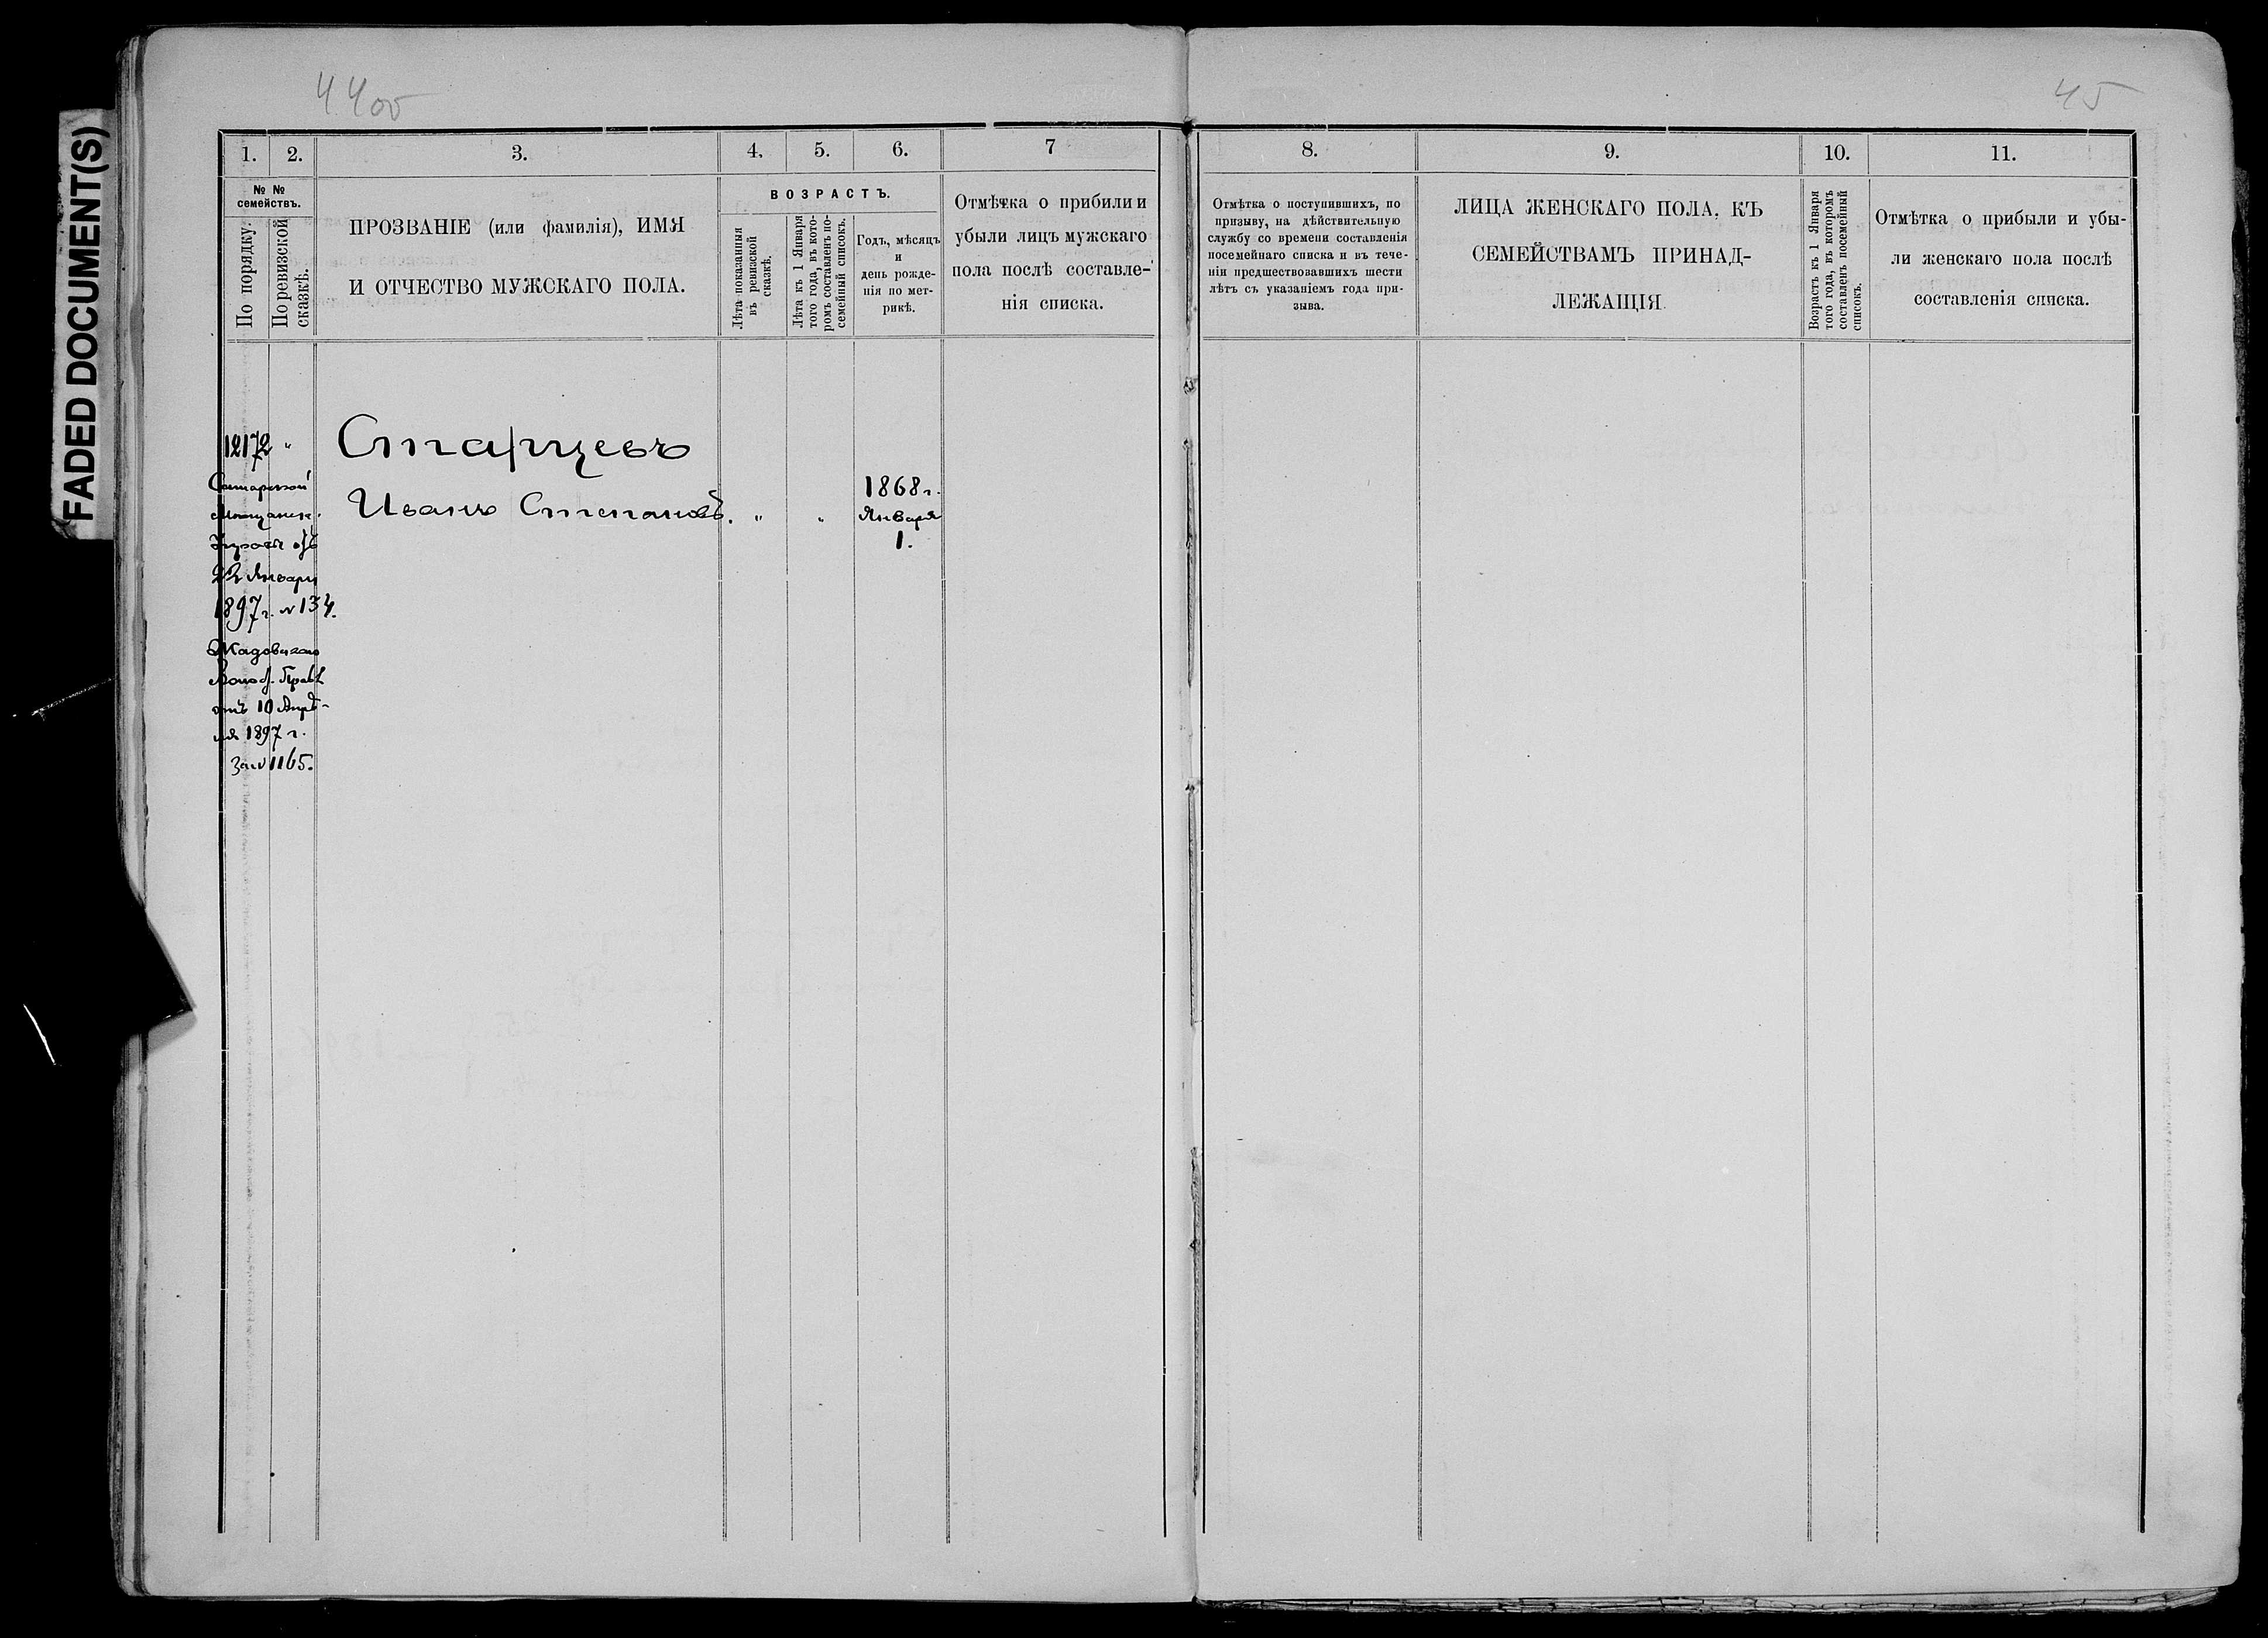 FADED DOCUMENT(S)
44об
45
1. 2. 3. 4. 5. 6. 7
№ №
семействъ.
По порядку.
По ревизской
сказкѣ.
ПРОЗВАНІЕ (или фамилія), ИМЯ
И ОТЧЕСТВО МУЖСКАГО ПОЛА.
ВОЗРАСТЪ.
Лѣта показанныя
въ ревизской
сказкѣ.
Лѣта къ 1 Января
того года, въ кото-
ромъ составленъ по-
семейный списокъ.
Годъ, мѣсяцъ
и
день рожде-
нія по мет-
рикѣ.
Отмѣтка о прибили и
убыли лицъ мужскаго
пола послѣ составле-
нія списка.
12172 "
Самарской
Мѣщанск.
Управы отъ
22 Января
1897 г. № 134.
Жадовскаго
Волос. Правл
отъ 10 Апрѣ-
ля 1897 г.
за № 1165.
Старцевъ
Иванъ Степановъ. " "
1868 г.
Января
1.
8. 9. 10. 11.
Отмѣтка о поступившихъ, по
призыву, на дѣйствительную
службу со времени составленія
посемейнаго списка и въ тече-
ніи предшествовавшихъ шести
лѣтъ съ указаніемъ года при-
зыва.
ЛИЦА ЖЕНСКАГО ПОЛА, КЪ
СЕМЕЙСТВАМЪ ПРИНАД-
ЛЕЖАЩІЯ
Возрастъ къ 1 Января
того года, въ которомъ
составленъ посемейный
списокъ.
Отмѣтка о прибыли и убы-
ли женскаго пола послѣ
составленія списка.